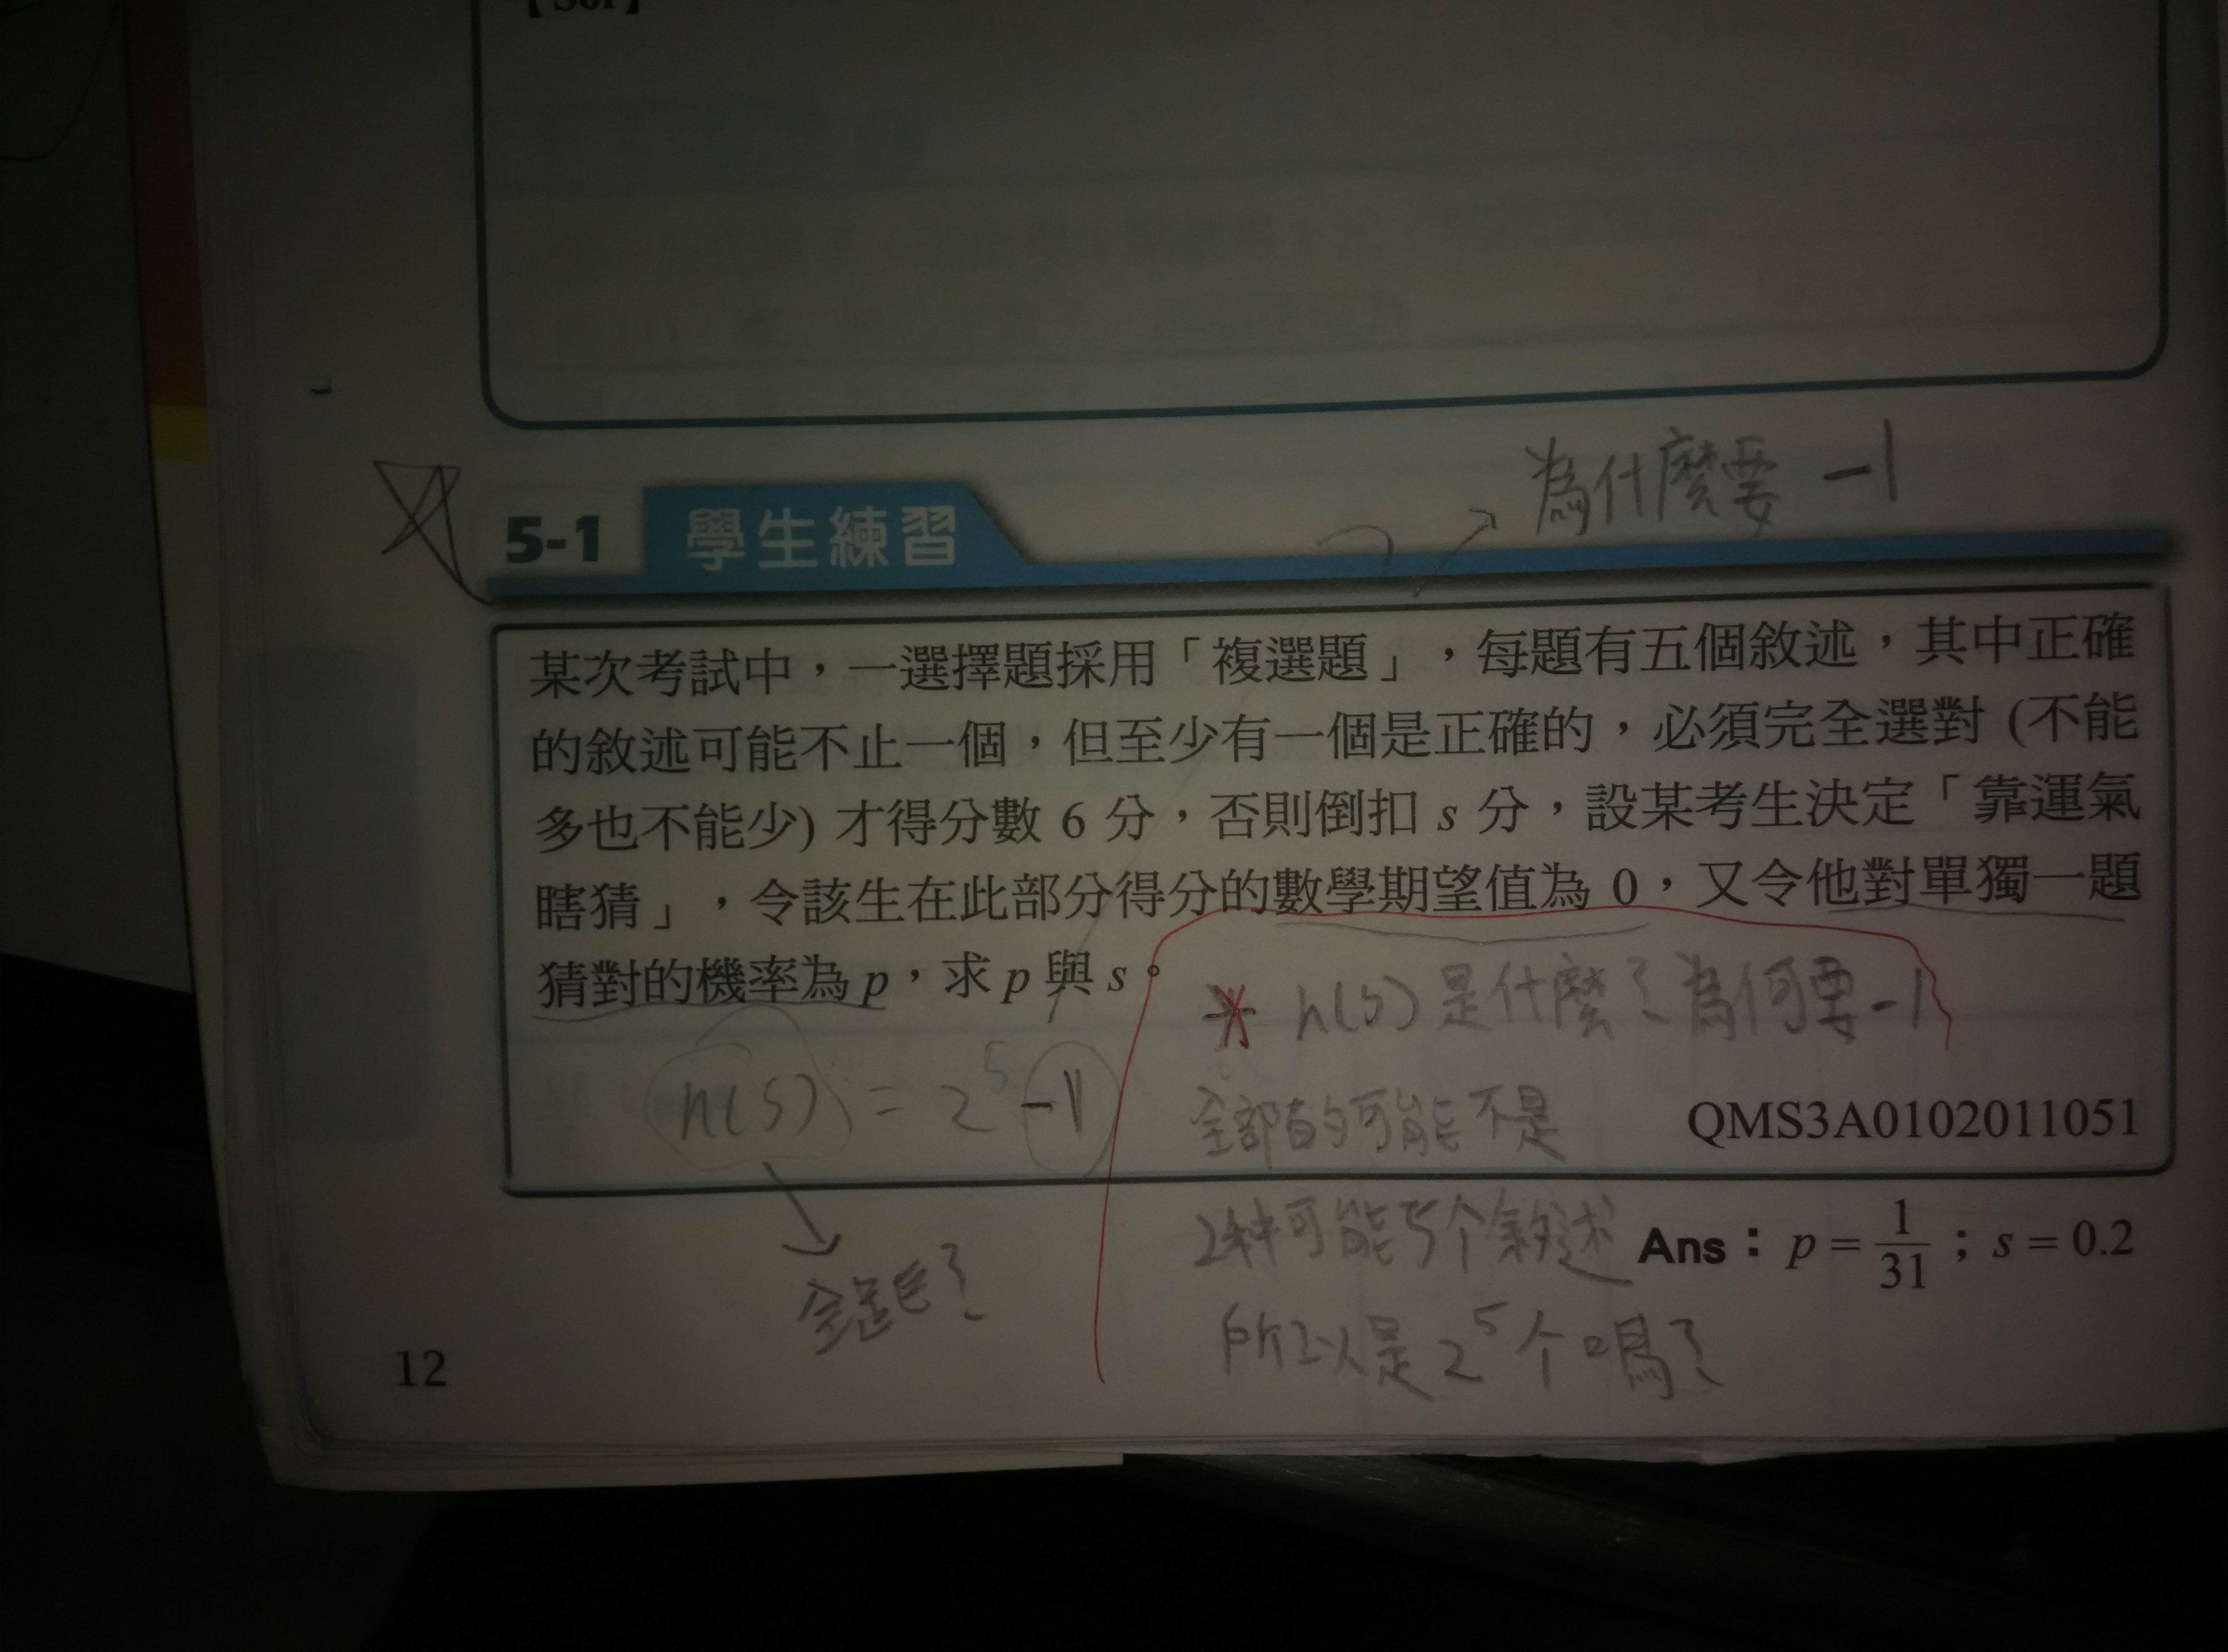 【Sol】
為什麼要 -1
5-1 學生練習
某次考試中，一選擇題採用「複選題」，每題有五個敘述，其中正確
的敘述可能不止一個，但至少有一個是正確的，必須完全選對 (不能
多也不能少) 才得分數 6 分，否則倒扣 s 分，設某考生決定「靠運氣
瞎猜」，令該生在此部分得分的數學期望值為 0，又令他對單獨一題
猜對的機率為 p，求 p 與 s。
* n(s) 是什麼？為何要 -1
n(S) = 2⁵ - 1
全部的可能不是
QMS3A0102011051
2种可能5个敘述
Ans：p = 1/31；s = 0.2
所以是 2⁵个嗎？
12